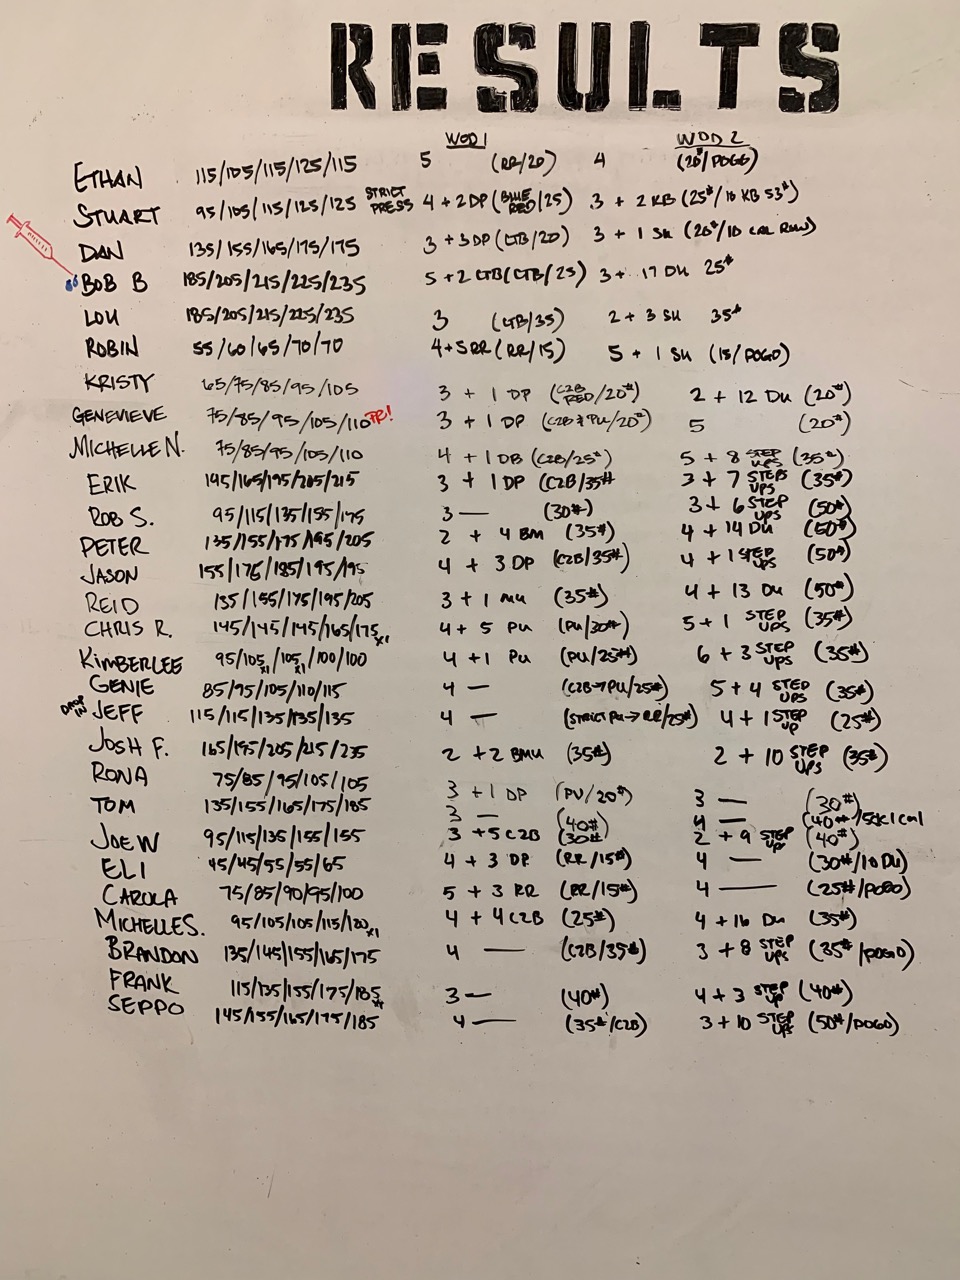 RESULTS
WOD 1 WOD 2
ETHAN 115/105/115/125/115 5 (RR/20) 4 (20#/POGO)
STUART 95/105/115/125/125 STRICT PRESS 4 + 2 DP (BLUE RED/25) 3 + 2 KB (25#/10 KB 53#)
DAN 135/155/165/175/175 3 + 3 DP (CTB/20) 3 + 1 SU (20#/10 CAL ROW)
BOB B 185/205/215/225/235 5 + 2 CTB (CTB/25) 3 + 17 DU 25#
LOU 185/205/215/225/235 3 (CTB/35) 2 + 3 SU 35#
ROBIN 55/60/65/70/70 4 + 5 RR (RR/15) 5 + 1 SU (15/POGO)
KRISTY 65/75/85/95/105 3 + 1 DP (C2B RED/20#) 2 + 12 DU (20#)
GENEVIEVE 75/85/95/105/110 PR! 3 + 1 DP (C2B → PU/20#) 5 (20#)
MICHELLE N. 75/85/95/105/110 4 + 1 DB (C2B/25#) 5 + 8 STEP UPS (35#)
ERIK 145/165/195/205/215 3 + 1 DP (C2B/35#) 3 + 7 STEPS UPS (35#)
ROB S. 95/115/135/155/175 3 — (30#) 3 + 6 STEP UPS (50#)
PETER 135/155/175/195/205 2 + 4 BM (35#) 4 + 14 DU (50#)
JASON 155/175/185/195/195 4 + 3 DP (C2B/35#) 4 + 1 STEP UPS (50#)
REID 135/155/175/195/205 3 + 1 MU (35#) 4 + 13 DU (50#)
CHRIS R. 145/145/145/165/175 x1 4 + 5 PU (PU/30#) 5 + 1 STEP UPS (35#)
KIMBERLEE 95/105 x1/105 x1/100/100 4 + 1 PU (PU/25#) 6 + 3 STEP UPS (35#)
GENIE 85/95/105/110/115 4 — (C2B→PU/25#) 5 + 4 STEP UPS (35#)
DROP IN JEFF 115/115/135/135/135 4 — (STRICT PU→RR/25#) 4 + 1 STEP UP (25#)
JOSH F. 165/195/205/215/235 2 + 2 BMU (35#) 2 + 10 STEP UPS (35#)
RONA 75/85/95/105/105 3 + 1 DP (PU/20#) 3 — (30#)
TOM 135/155/165/175/185 3 — (40#) 4 — (40#/ cal
JOE W 95/115/135/155/155 3 + 5 C2B (30#) 2 + 9 STEP UP (40#)
ELI 45/45/55/55/65 4 + 3 DP (RR/15#) 4 — (30#/10 DU)
CAROLA 75/85/90/95/100 5 + 3 RR (RR/15#) 4 — (25#/POGO)
MICHELLE S. 95/105/105/115/120 x1 4 + 4 C2B (25#) 4 + 16 DU (35#)
BRANDON 135/145/155/165/175 4 — (C2B/35#) 3 + 8 STEP UPS (35#/POGO)
FRANK 115/135/155/175/185 3 — (40#) 4 + 3 STEP UP (40#)
SEPPO 145/155/165/175/185 4 — (35#/C2B) 3 + 10 STEP UPS (50#/POGO)